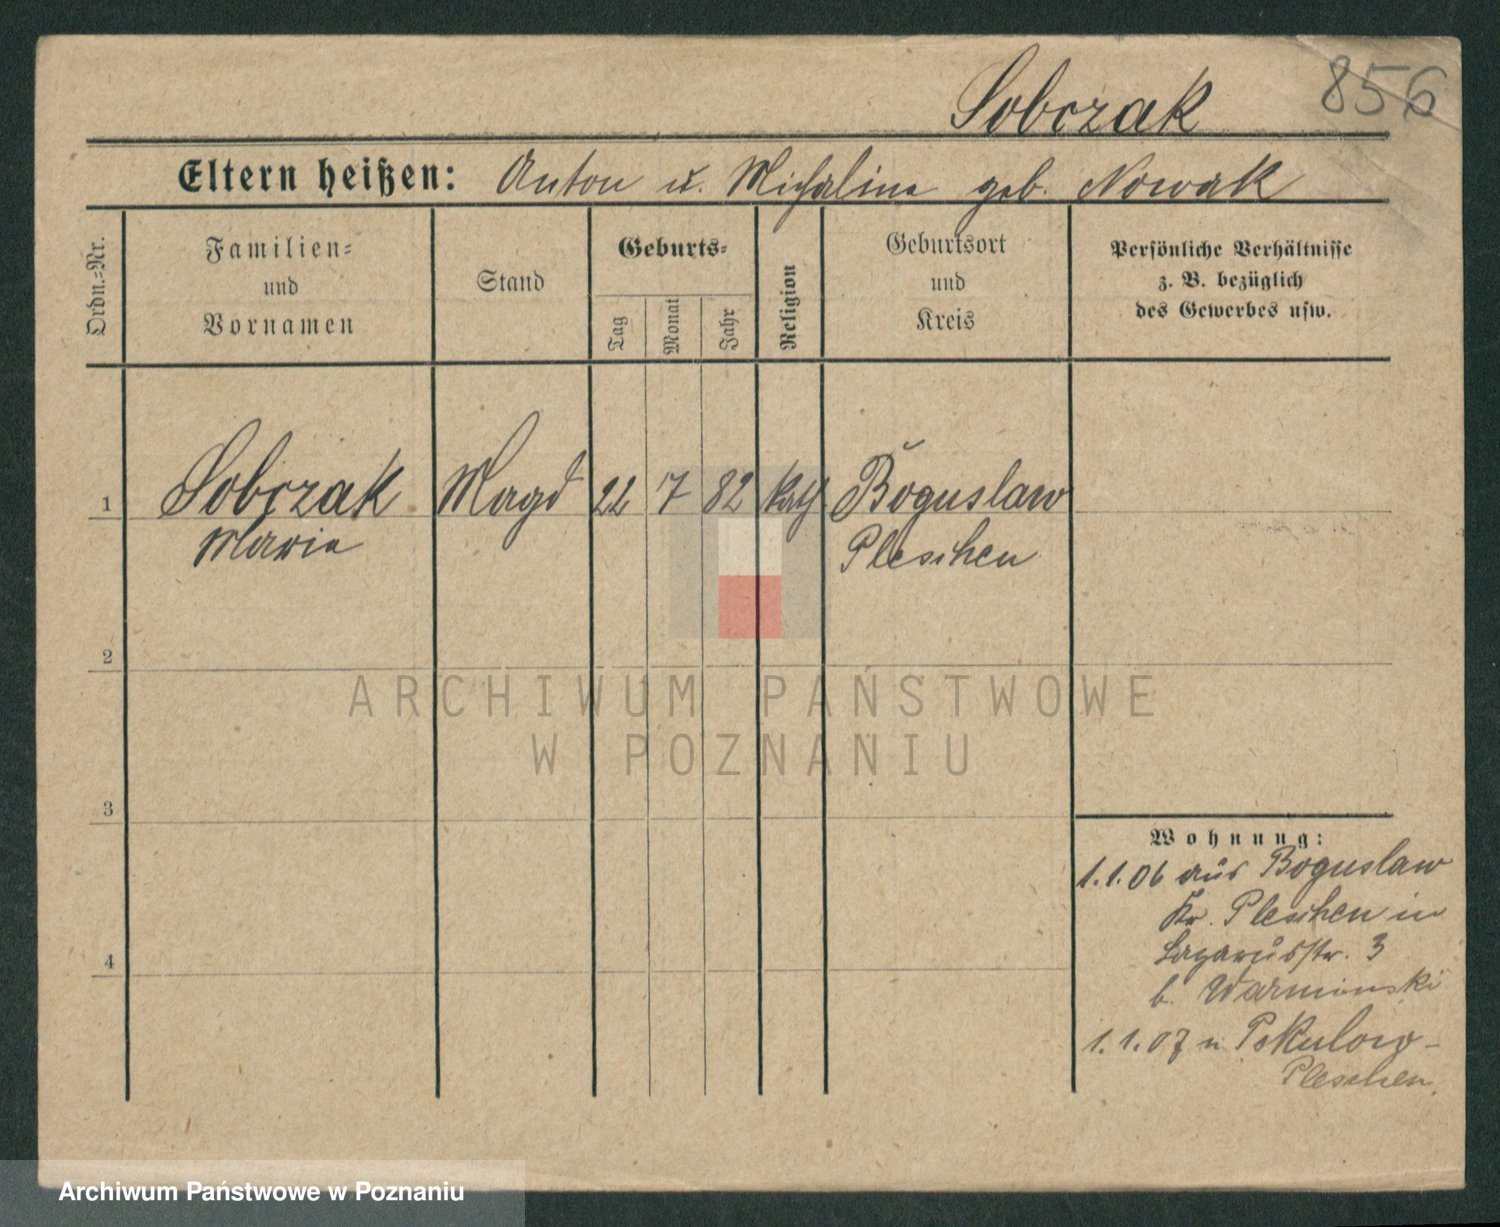 856
Sobczak
Eltern heißen: Anton u. Michalina geb. Nowak
Ordn.=Nr.
Familien=
und
Vornamen
Stand
Geburts=
Tag
Monat
Jahr
Religion
Geburtsort
und
Kreis
Persönliche Verhältnisse
z. B. bezüglich
des Gewerbes usw.
1 Sobczak Magd 22 7 82 kath Boguslaw
Maria Pleschen
2
ARCHIWUM PAŃSTWOWE
W POZNANIU
3
Wohnung:
1.1.06 aus Boguslaw
Kr. Pleschen in
Lazarusstr. 3
b. Warminski
4
1.1.07 n Pokulow-
Pleschen.
Archiwum Państwowe w Poznaniu